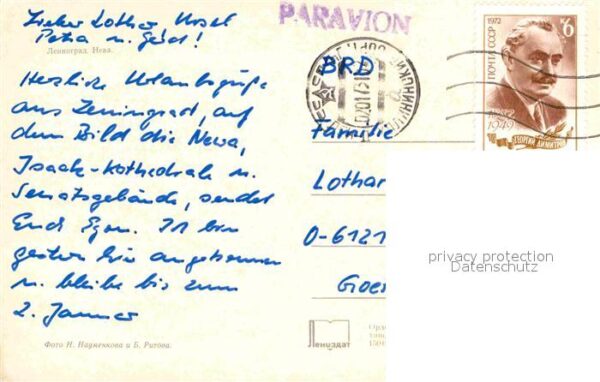 Lieber Lothar Ursel
Petra u. Gerd!
Ленинград. Нева.
Herzliche Urlaubsgrüße
aus Leningrad, auf
dem Bild die Newa,
Isaak-Kathedrale u.
Senatsgebäude, sendet
Euch Egon. Ich bin
gestern hier angekommen
u. bleibe bis zum
2. Januar
Фото Н. Науменкова и Б. Ритова.
PARAVION
BRD
Familie
Lothar
D-6121
Лениздат
1972
ПОЧТА СССР
6к
1882
1949
privacy protection
Datenschutz